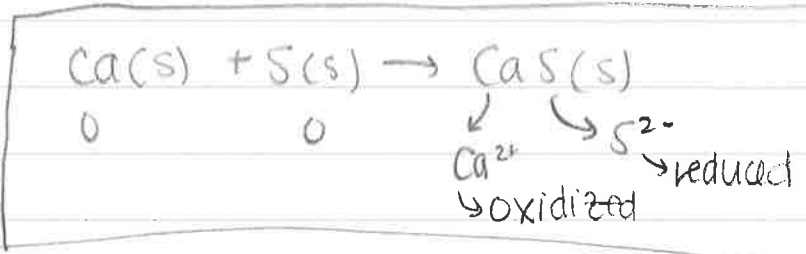 Ca(s) + S(s) → CaS(s)
0 0
Ca²⁺ S²⁻
↳oxidized ↳reduced